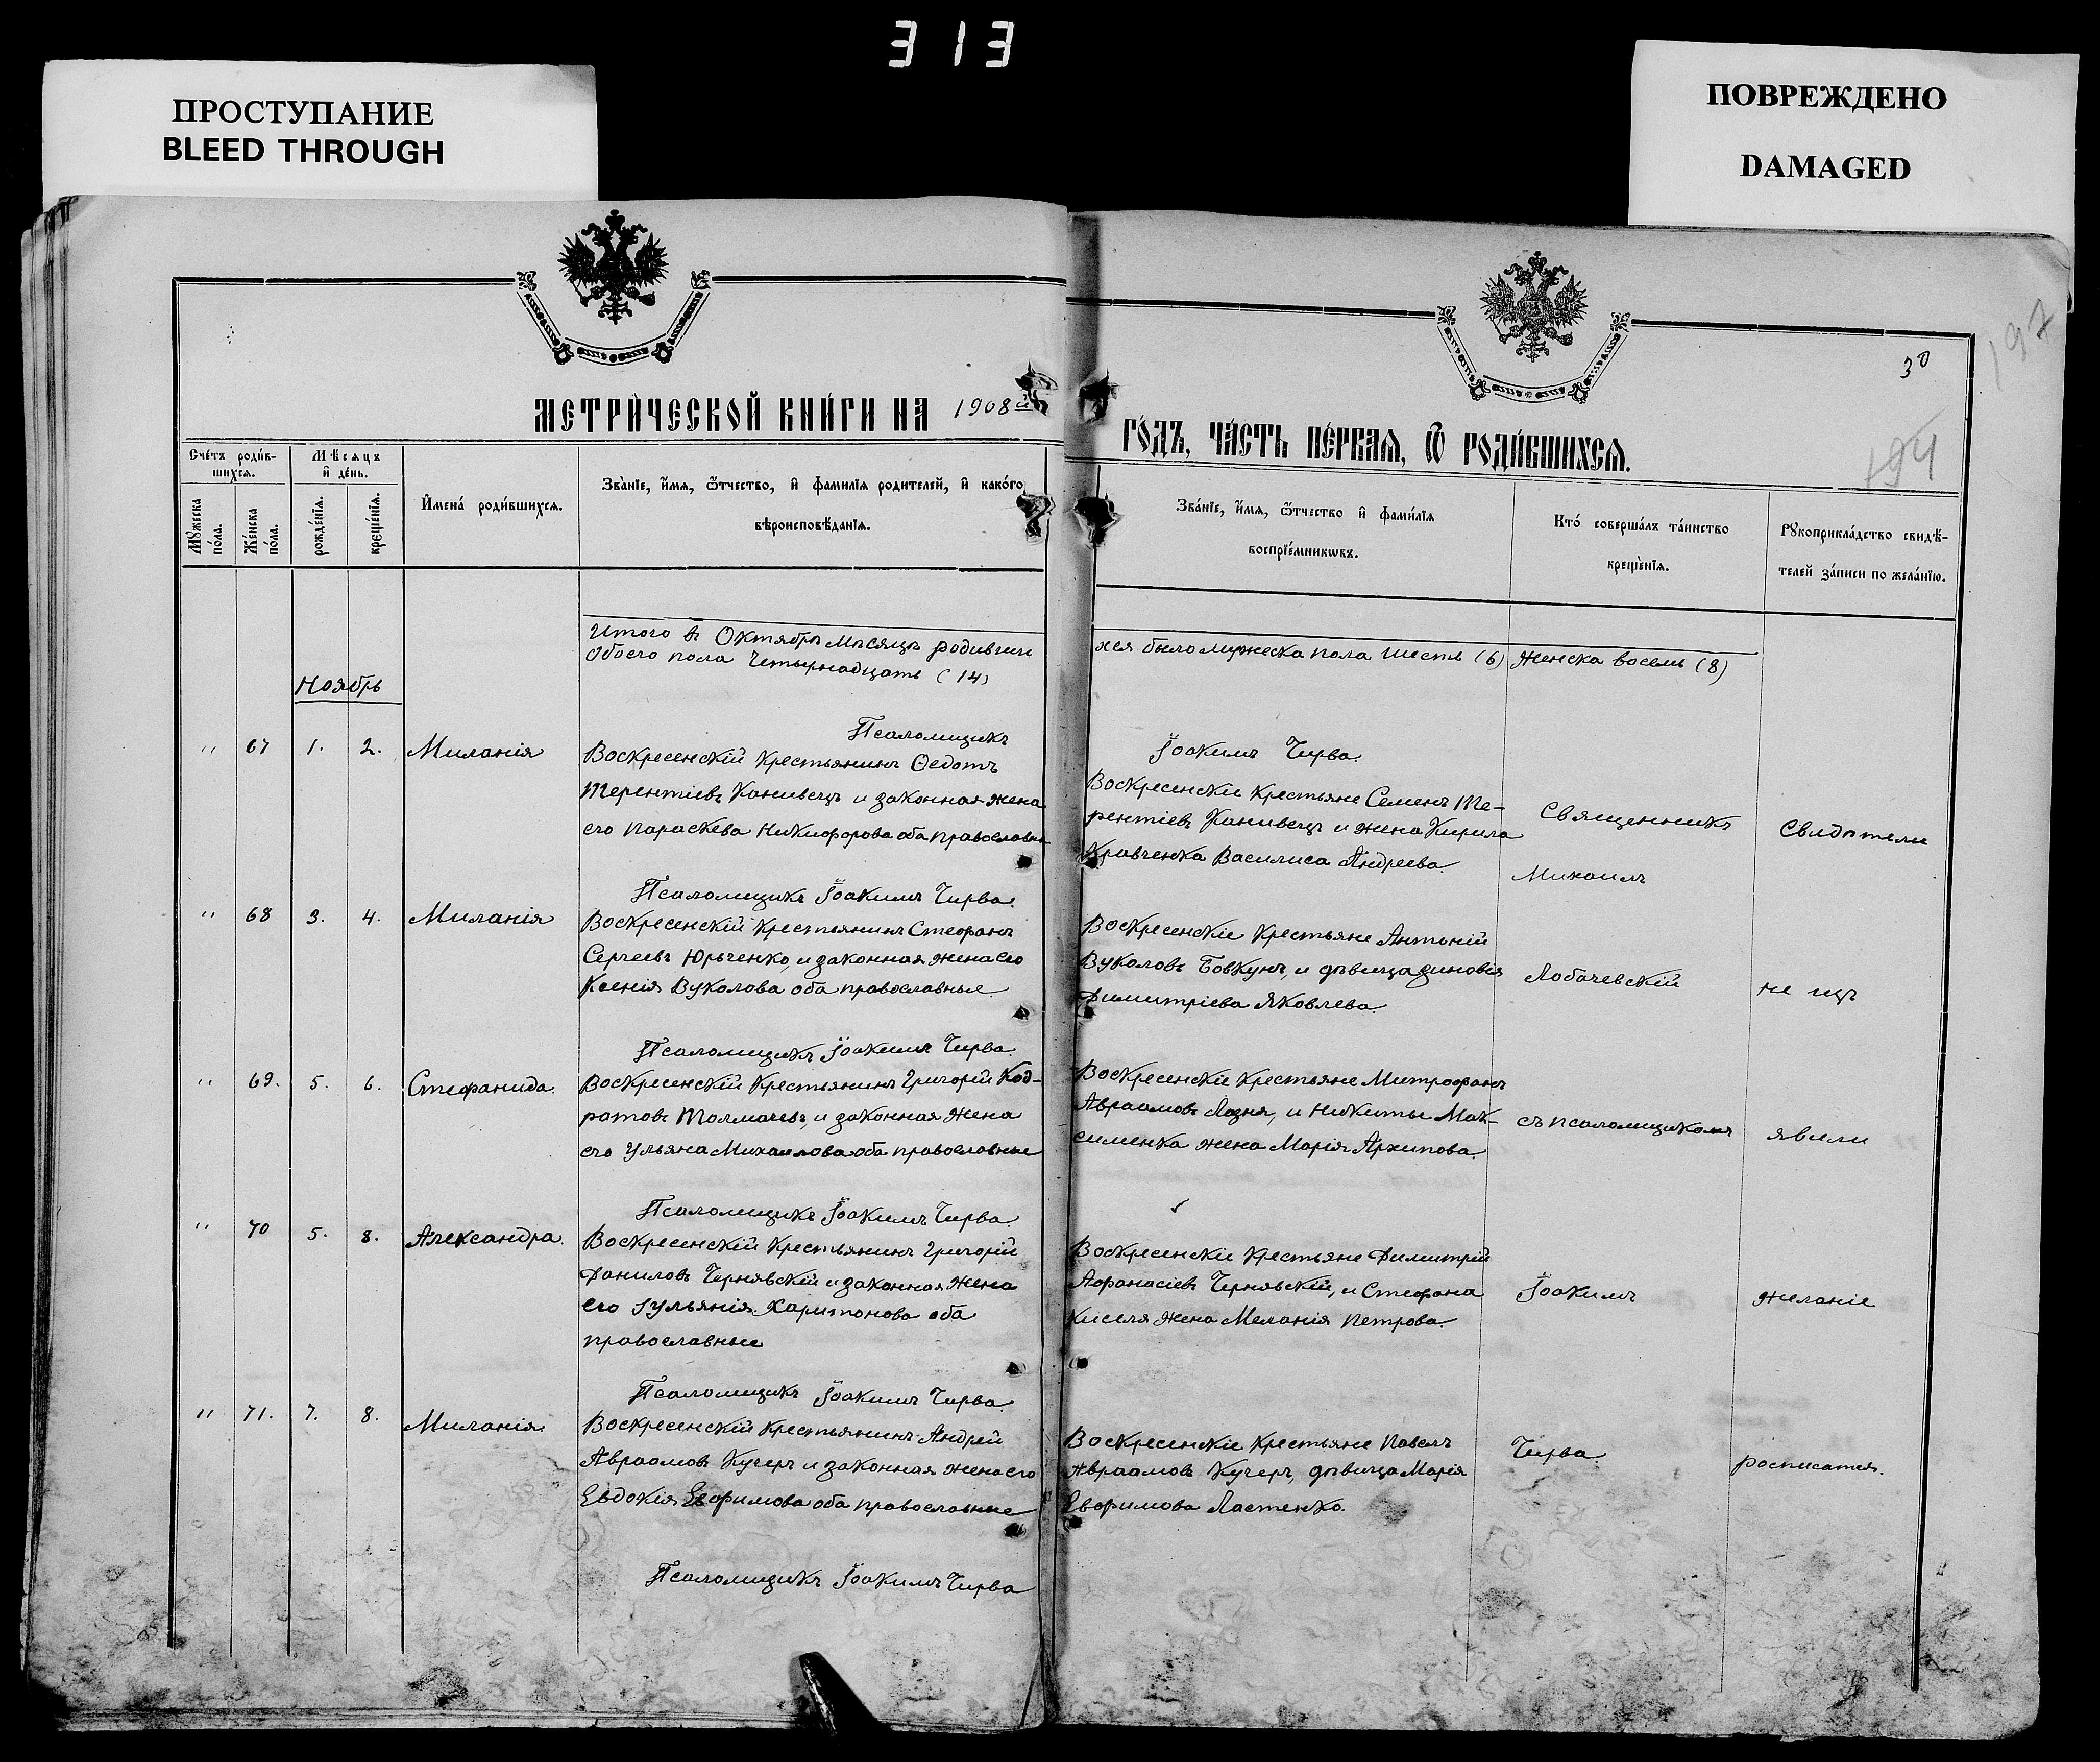 313
ПРОСТУПАНИЕ
BLEED THROUGH
ПОВРЕЖДЕНО
DAMAGED
197
30
194
МЕТРИ́ЧЕСКОЙ КНИ́ГИ НА 1908й
ГО́ДЪ, ЧА́СТЬ ПЕ́РВАЯ, Ѿ РОДИ́ВШИХСЯ.
Сче́тъ роди́в-
шихся.
Мѣсяцъ
и҆ де́нь.
Мꙋжеска
по́ла.
Же́нска
по́ла.
рожде́нїя.
креще́нїя.
И҆мена́ роди́вшихся.
Зва́нїе, и҆́мя, ѻ҆́тчество, и҆ фами́лїя роди́телей, и҆ како́го
вѣроисповѣ́данїя.
Зва́нїе, и҆́мя, ѻ҆́тчество и҆ фами́лїя
воспрїе́мникѡвъ.
Кто̀ соверша́лъ та́инство
креще́нїя.
Рꙋкоприкла́дство свидѣ́-
телей за́писи по жела́нїю.
Итого въ Октябрѣ мѣсяцѣ родивши
хся было мужеска пола шесть (6) женска восемь (8)
обоего пола четырнадцать (14)
Ноябрь
Псаломщикъ
Іоакимъ Чирва.
" 67 1. 2. Миланія
Воскресенскій крестьянинъ Ѳедотъ
Терентіевъ Канивецъ и законная жена
его Параскева Никифорова оба православны
Воскресенскіе крестьяне Семенъ Те-
рентіевъ Канивецъ и жена Кирила
Кравченка Василиса Андреева.
Священникъ
Михаилъ
Свидѣтели
Псаломщикъ Іоакимъ Чирва.
" 68 3. 4. Миланія
Воскресенскій крестьянинъ Стефанъ
Сергеевъ Юрьченко, и законная жена его
Ксенія Вуколова оба православные.
Воскресенскіе крестьяне Антоній
Вуколовъ Бовкунъ, и дѣвица Зиновія
Димитріева Яковлева.
Лобачевскій
не изъ
Псаломщикъ Іоакимъ Чирва.
" 69. 5. 6. Стефанида.
Воскресенскій крестьянинъ Григорій Код-
ратовъ Толмачевъ, и законная жена
его Ульяна Михаилова оба православные
Воскресенскіе крестьяне Митрофанъ
Авраамовъ Лозня, и Никиты Мак-
сименка жена Марія Архипова.
съ псаломщикомъ
явили
Псаломщикъ Іоакимъ Чирва.
" 70 5. 8. Александра.
Воскресенскій крестьянинъ Григорій
Даниловъ Чернявскій и законная жена
его Іульянія Харитонова оба
православные
Воскресенскіе крестьяне Димитрій
Афанасіевъ Чернявскій, и Стефана
Киселя жена Меланія Петрова.
Іоакимъ
желаніе
Псаломщикъ Іоакимъ Чирва.
" 71. 7. 8. Миланія
Воскресенскій крестьянинъ Андрей
Авраамовъ Кучеръ и законная жена его
Евдокія Евфимова оба православные
Воскресенскіе крестьяне Павелъ
Авраамовъ Кучеръ, дѣвица Марія
Евфимова Ластенко.
Чирва
росписатся.
Псаломщикъ Іоакимъ Чирва